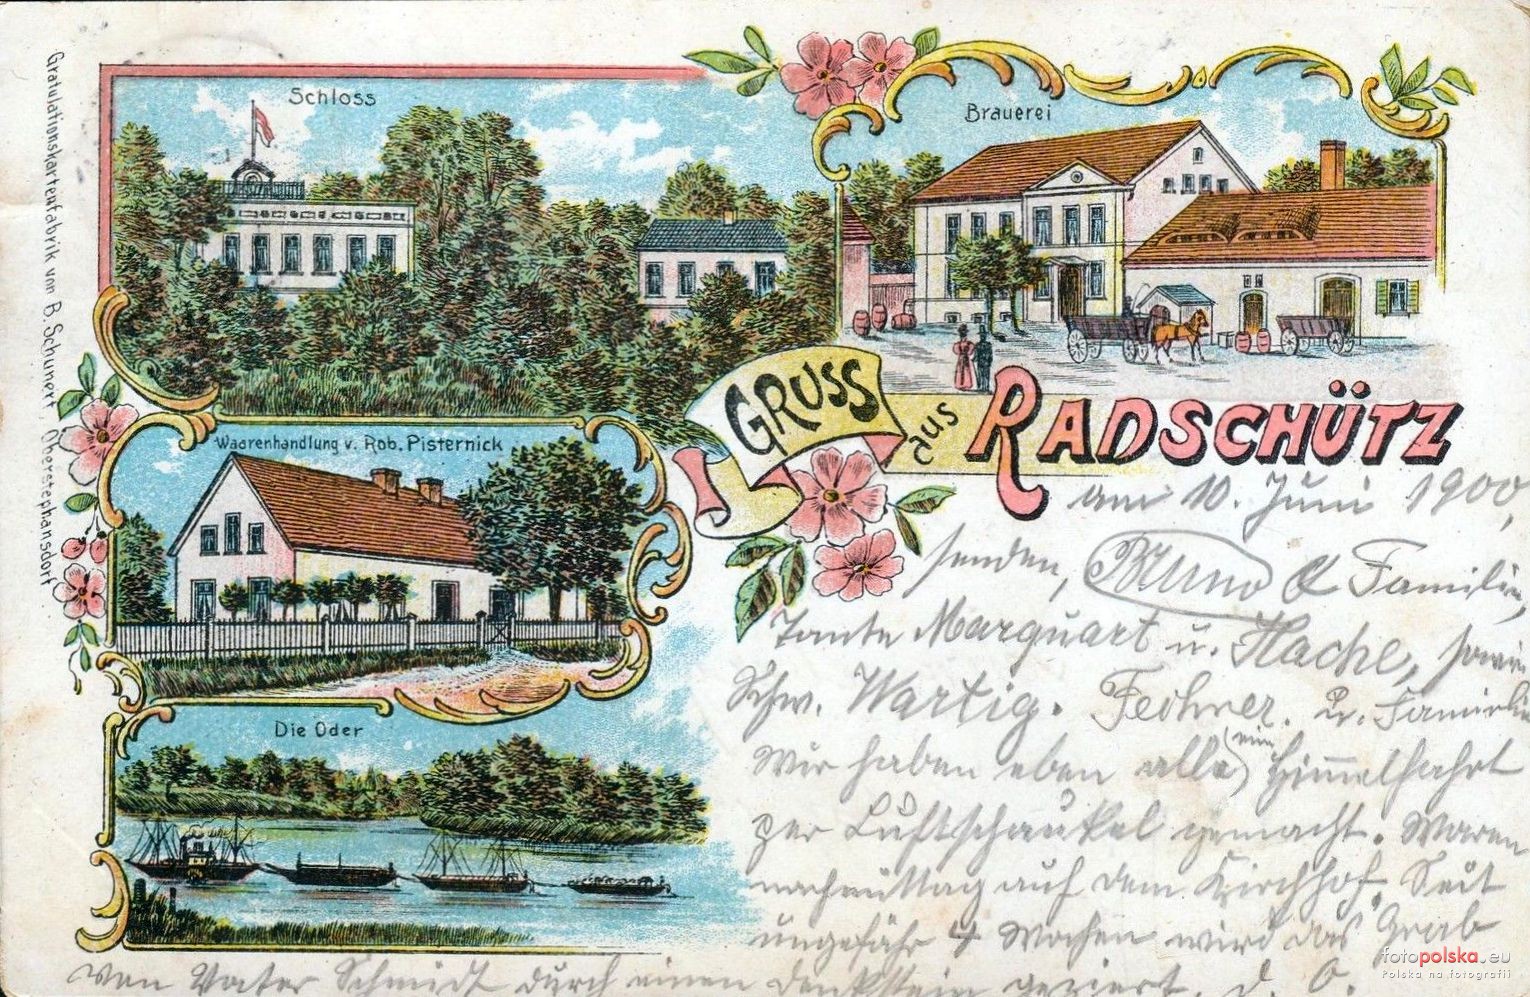 Gratulationskartenfabrik von B. Schunert, Oberstephansdorf
Schloss
Brauerei
Waarenhandlung v. Rob. Pisternick
Die Oder
GRUSS
aus
RADSCHÜTZ
am 10. Juni 1900,
senden, Bruno & Familie,
Tante Marquart u. Hache, sowie
Schw. Wartig. Fechner. u. Familie
Wir haben eben alle, eine Himmelfahrt
per Luftschaukel gemacht. Waren
nachmittag auf dem Kirchhof. Seit
ungefähr 4 Wochen wird das Grab
von Vater Schmidt durch einen Denkstein geziert. d. O.
fotopolska.eu
Polska na fotografii